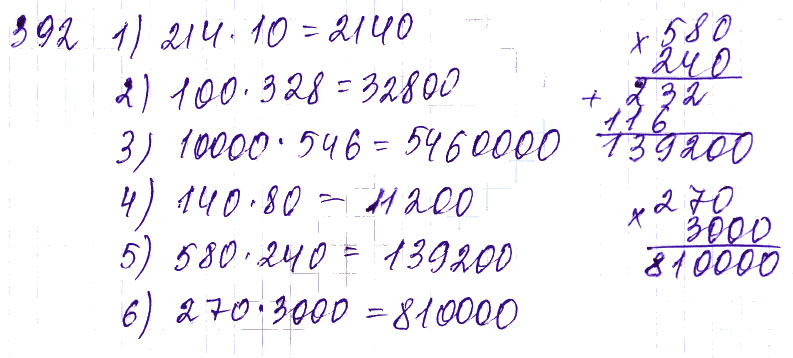 392 1) 214 · 10 = 2140
2) 100 · 328 = 32800
3) 10000 · 546 = 5460000
4) 140 · 80 = 11200
5) 580 · 240 = 139200
6) 270 · 3000 = 810000
× 580
240
+ 232
116
139200
× 270
3000
810000